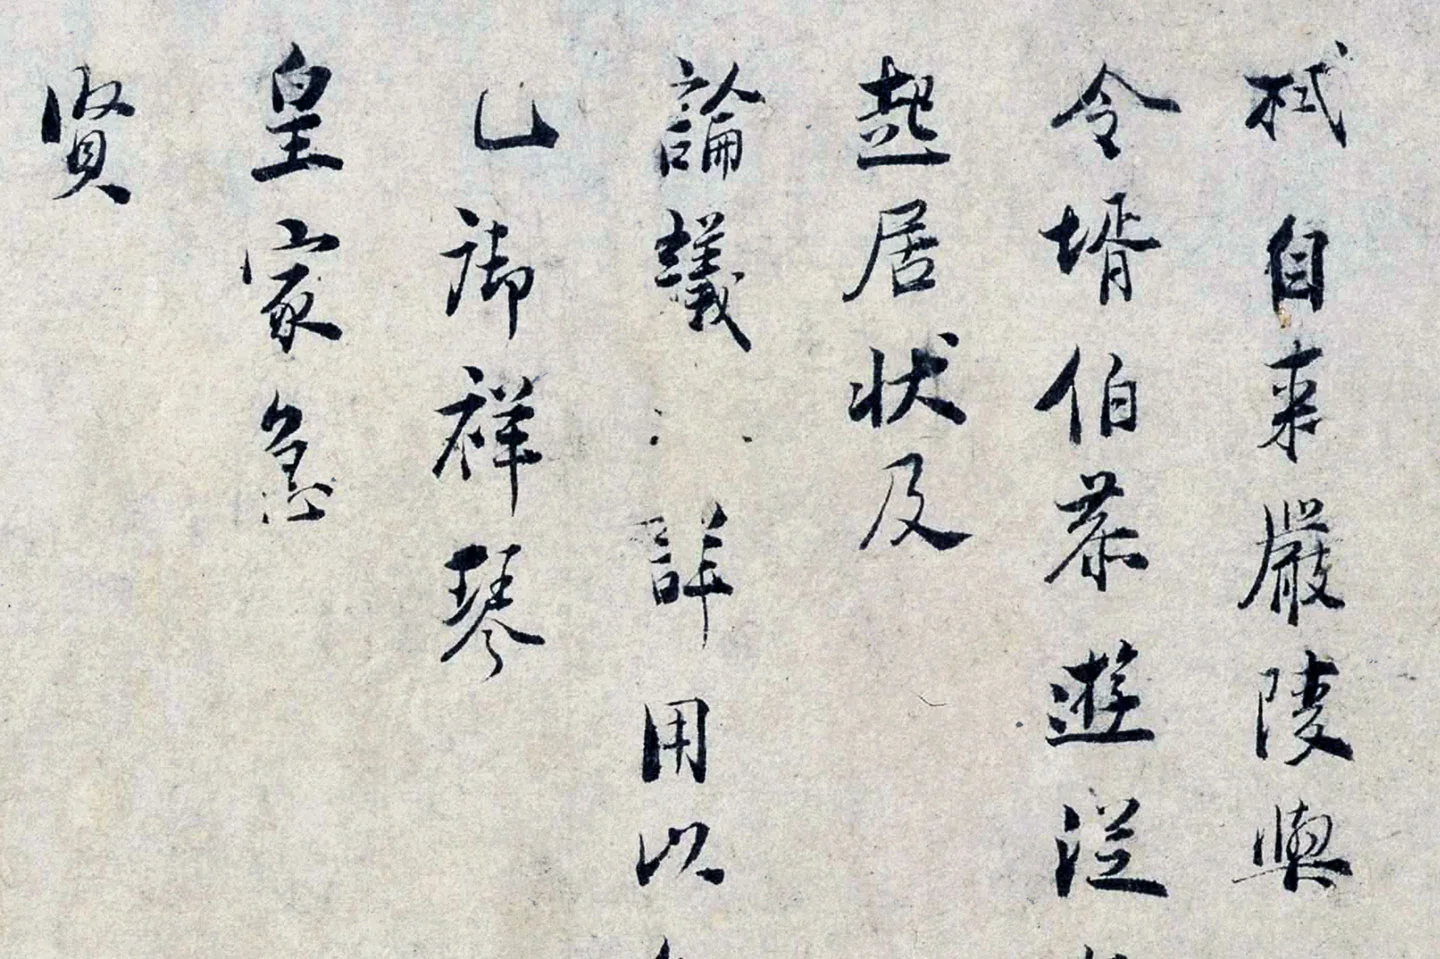 栻自来嚴陵與
令壻伯恭遊従
起居状及
論議詳用以
已御祥琴
皇家急
賢